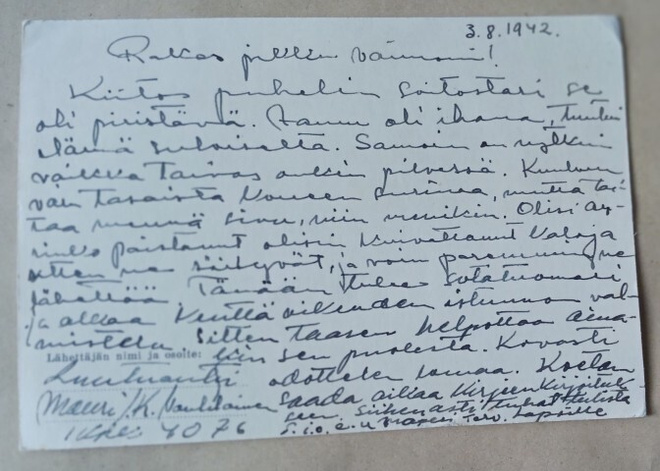 3.8.1942.
Rakas pikku vaimoni!
Kiitos puhelin soitostasi se
oli piristävä. Aamu oli ihana, tuntui
elämä suloiselta. Samoin on nytkin
vaikka taivas onkin pilvessä. Kuuluu
vain tasaista koneen surinaa, mutta tai-
taa mennä sivu, niin menikin. Olisi au-
rinko paistanut olisin kuivattanut kaloja
sitten ne säilyvät, ja voin paremmin ne
lähettää. Tänään tulee sotatuomari
ja alkaa kenttäoikeuden istunnon val-
mistelu. Sitten taasen helpottaa aina-
kin sen puolesta. Kovasti
odottelen lomaa. Koetan
saada aikaa kirjeen kirjoituk-
seen. Siihen asti tuhat
Terv. lapsille
Lähettäjän nimi ja osoite:
Luutnantti
Mauri K.
4076